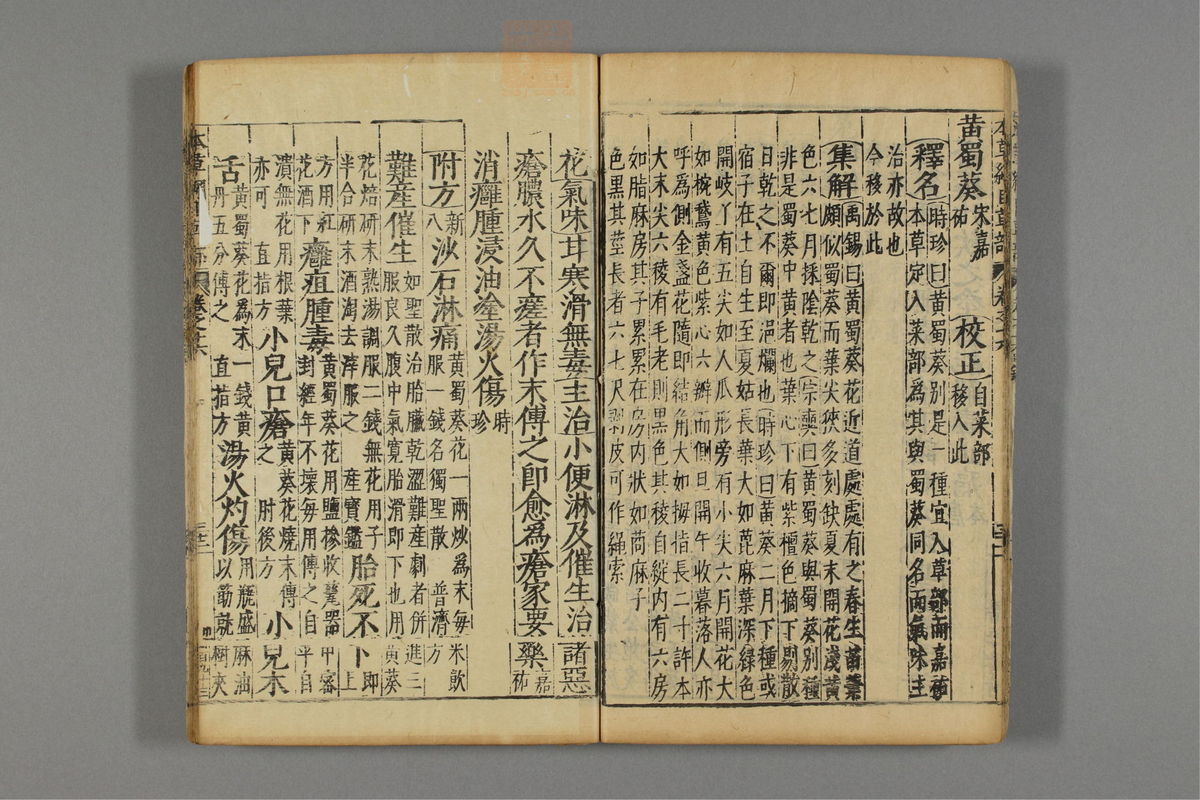 黃蜀葵宋嘉祐 校正自菜部移入此
釋名時珍曰黃蜀葵別是一種宜入草部而嘉祐本草定入菜部為其與蜀葵同名而氣味主
治亦故也今移於此
集解禹錫曰黃蜀葵花近道處處有之春生苗葉頗似蜀葵而葉尖狹多刻缺夏末開花淺黃
色六七月採陰乾之宗奭曰黃蜀葵與蜀葵別種非是蜀葵中黃者也葉心下有紫檀色摘下剔散
日乾之不爾即浥爛也時珍曰黃葵二月下種或宿子在土自生至夏始長葉大如蓖麻葉深綠色
開岐丫有五尖如人爪形旁有小尖六月開花大如椀鵞黃色紫心六瓣而側旦開午收暮落人亦
呼為側金盞花隨即結角大如拇指長二寸許本大末尖六稜有毛老則黑色其稜自綻內有六房
如脂麻房其子累累在房內狀如苘麻子色黑其莖長者六七尺剥皮可作繩索
花氣味甘寒滑無毒主治小便淋及催生治諸惡
瘡膿水久不瘥者作末傅之即愈為瘡家要藥嘉祐
消癰腫浸油塗湯火傷時珍
附方新八沙石淋痛黃蜀葵花一兩炒為末每米飲服一錢名獨聖散 普濟方
難產催生如聖散治胎臟乾澀難產劇者併進三服良久腹中氣寬胎滑即下也用黃葵
花焙研末熟湯調服二錢無花用子半合研末酒淘去滓服之 產寶鑑胎死不下即上
方用紅花酒下癰疽腫毒黃蜀葵花用鹽摻收甆器甲密封經年不壞每用傅之自平自
潰無花用根葉亦可 直指方小兒口瘡黃葵花燒末傅之 肘後方小兒木
舌黃蜀葵花為末一錢黃丹五分傅之 直指方湯火灼傷用瓶盛麻油以筯就樹夾